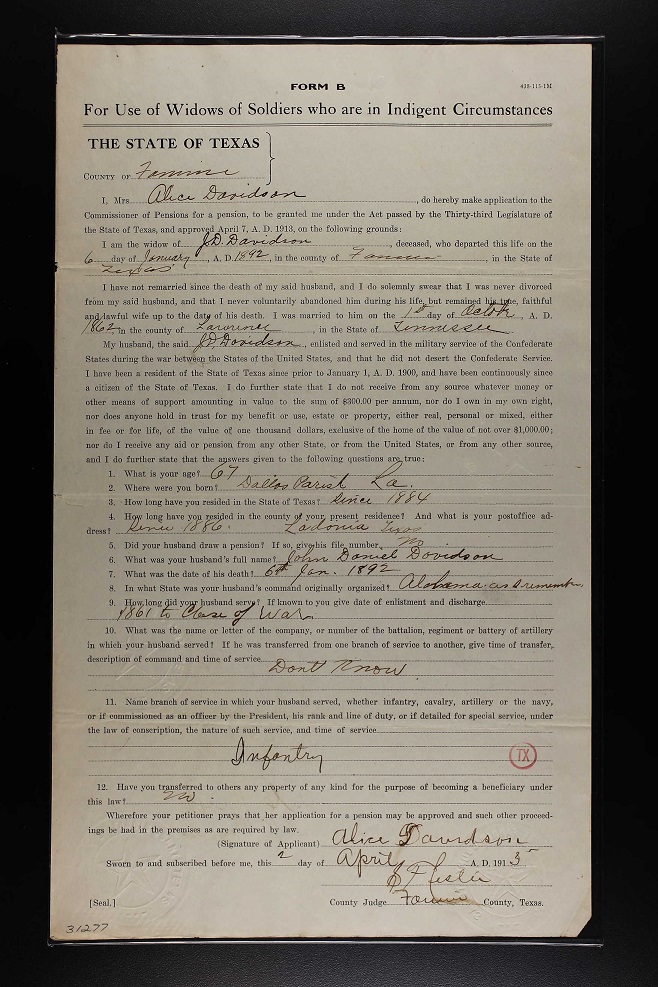 FORM B
418-113-1M
For Use of Widows of Soldiers who are in Indigent Circumstances
THE STATE OF TEXAS
COUNTY OF Fannin
I, Mrs. Alice Davidson, do hereby make application to the
Commissioner of Pensions for a pension, to be granted me under the Act passed by the Thirty-third Legislature of
the State of Texas, and approved April 7, A. D. 1913, on the following grounds:
I am the widow of J.D. Davidson, deceased, who departed this life on the
6 day of January, A. D. 1892, in the county of Fannin, in the State of
Texas
I have not remarried since the death of my said husband, and I do solemnly swear that I was never divorced
from my said husband, and that I never voluntarily abandoned him during his life, but remained his true, faithful
and lawful wife up to the date of his death. I was married to him on the 1st day of Octob, A. D.
1862, in the county of Lawrence, in the State of Tennessee
My husband, the said J.D. Davidson, enlisted and served in the military service of the Confederate
States during the war between the States of the United States, and that he did not desert the Confederate Service.
I have been a resident of the State of Texas since prior to January 1, A. D. 1900, and have been continuously since
a citizen of the State of Texas. I do further state that I do not receive from any source whatever money or
other means of support amounting in value to the sum of $300.00 per annum, nor do I own in my own right,
nor does anyone hold in trust for my benefit or use, estate or property, either real, personal or mixed, either
in fee or for life, of the value of one thousand dollars, exclusive of the home of the value of not over $1,000.00;
nor do I receive any aid or pension from any other State, or from the United States, or from any other source,
and I do further state that the answers given to the following questions are true:
1. What is your age? 67
2. Where were you born? Dallos Parish La.
3. How long have you resided in the State of Texas? Since 1884
4. How long have you resided in the county of your present residence? And what is your postoffice ad-
dress? Since 1886. Ladonia Texas
5. Did your husband draw a pension? If so, give his file number. No
6. What was your husband's full name? John Daniel Davidson
7. What was the date of his death? 6th Jan. 1892
8. In what State was your husband's command originally organized? Alabama as I remember
9. How long did your husband serve? If known to you give date of enlistment and discharge
1861 to Close of War
10. What was the name or letter of the company, or number of the battalion, regiment or battery of artillery
in which your husband served? If he was transferred from one branch of service to another, give time of transfer,
description of command and time of service
Dont Know
11. Name branch of service in which your husband served, whether infantry, cavalry, artillery or the navy,
or if commissioned as an officer by the President, his rank and line of duty, or if detailed for special service, under
the law of conscription, the nature of such service, and time of service
Infantry
TX
12. Have you transferred to others any property of any kind for the purpose of becoming a beneficiary under
this law? No.
Wherefore your petitioner prays that her application for a pension may be approved and such other proceed-
ings be had in the premises as are required by law.
(Signature of Applicant) Alice Davidson
Sworn to and subscribed before me, this 2 day of April A. D. 1915
Leslie
[Seal.] County Judge Fannin County, Texas.
31277